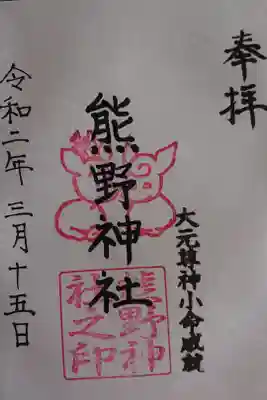 奉拝
大元尊神小命成就
熊野神社
熊野神
社之印
令和二年三月十五日